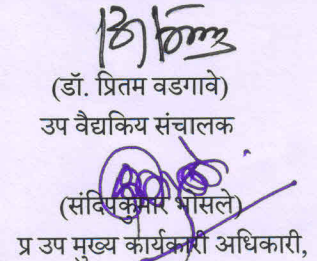 (डॉ. प्रितम वडगावे)
उप वैद्यकिय संचालक
(संदिपकुमार भोसले)
प्र उप मुख्य कार्यकारी अधिकारी,